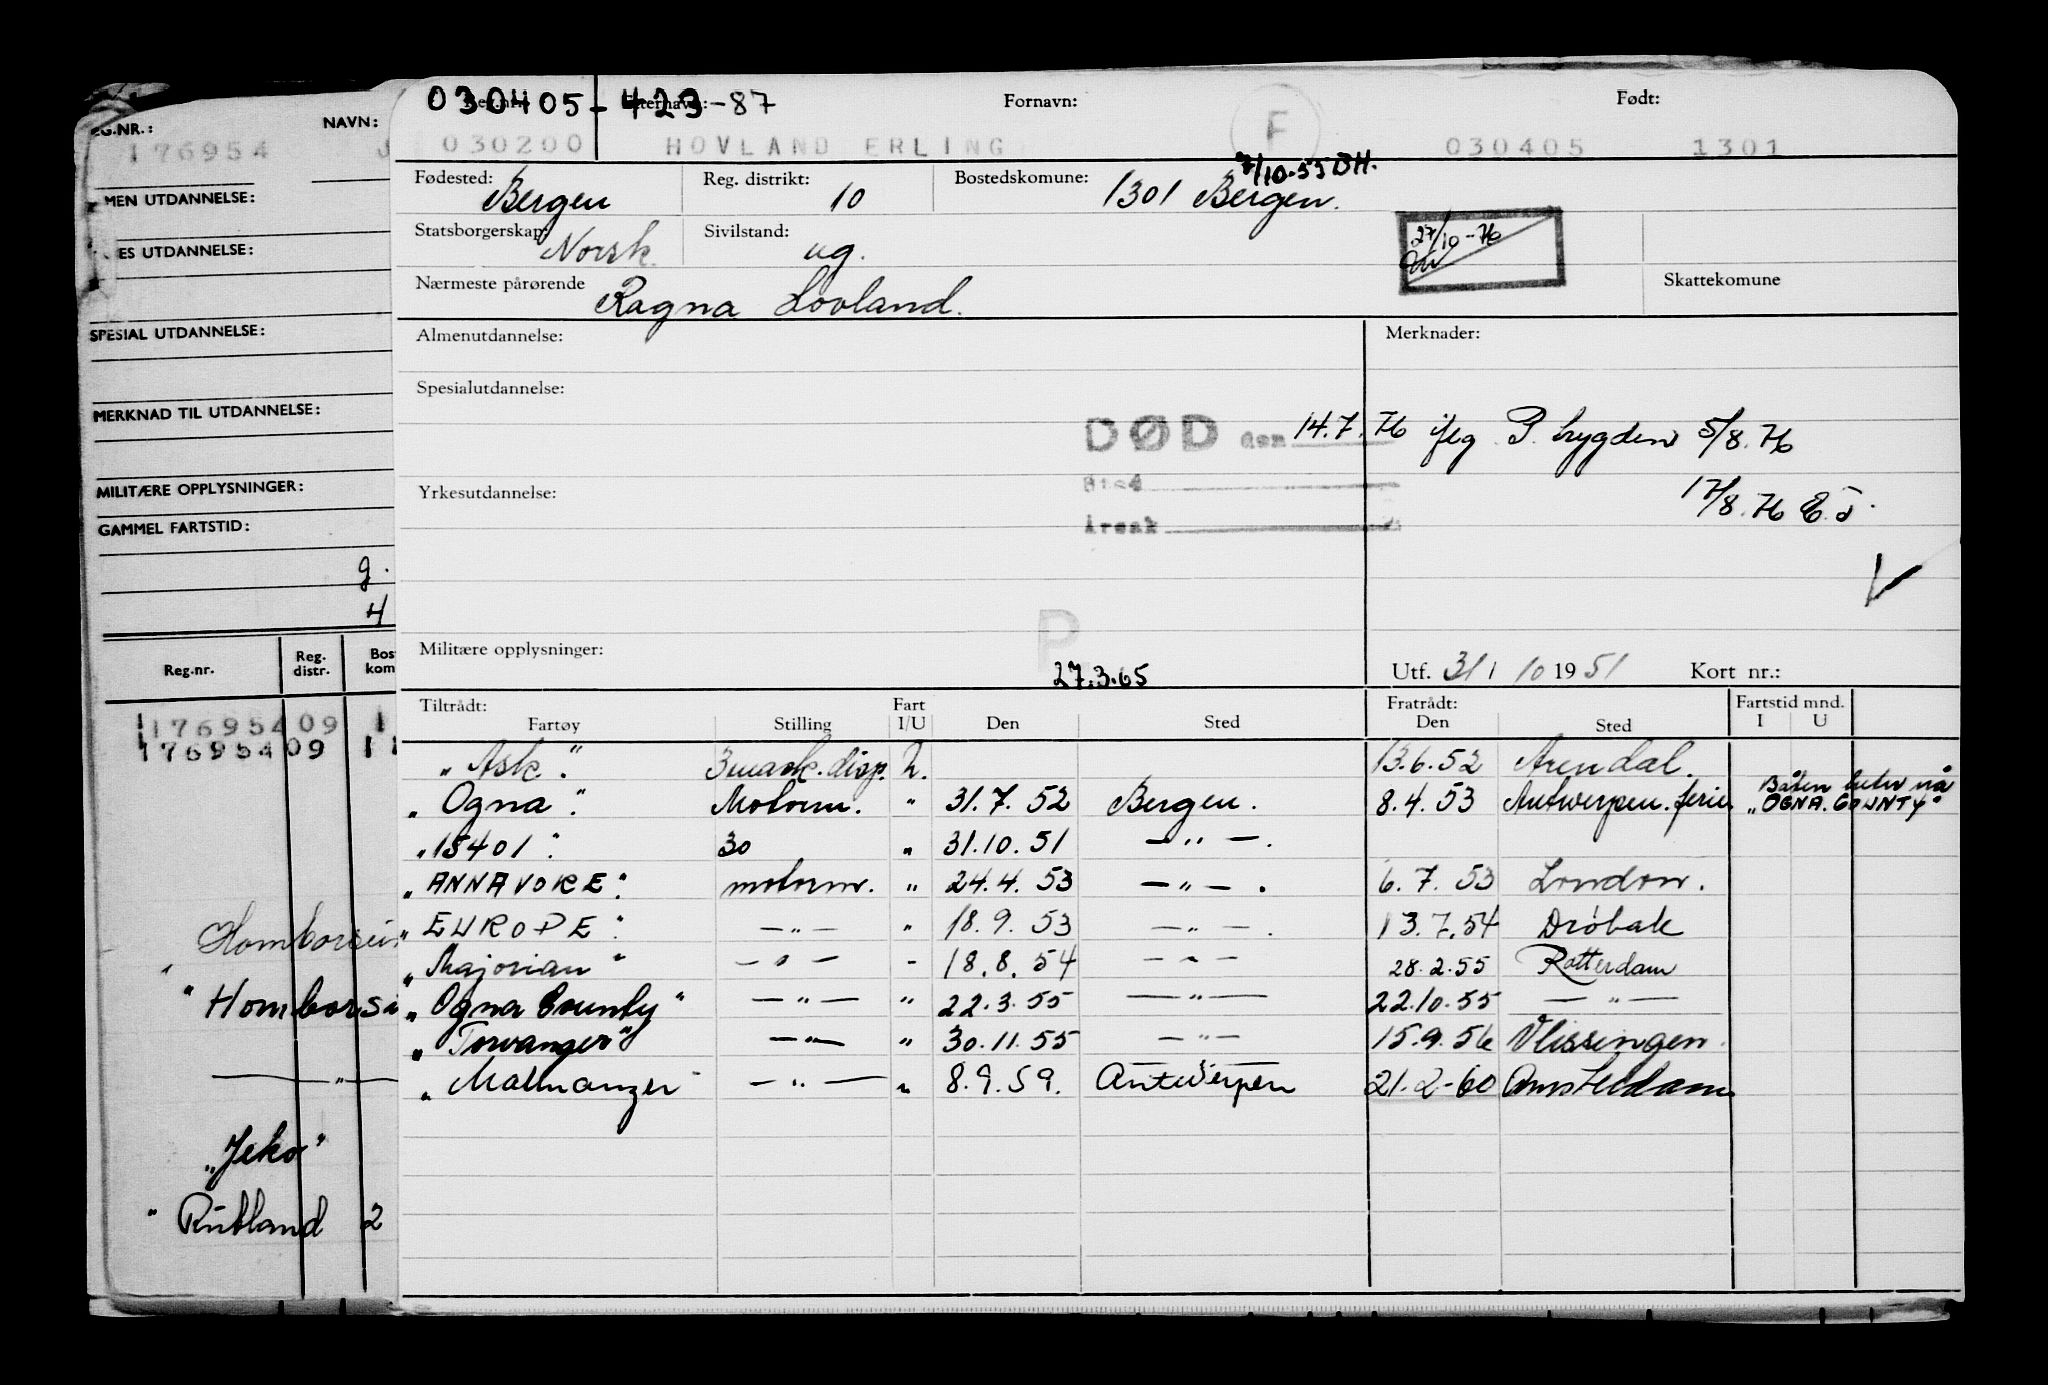 EG.NR.: NAVN:
176954 J
MEN UTDANNELSE:
ES UTDANNELSE:
SPESIAL UTDANNELSE:
MERKNAD TIL UTDANNELSE:
MILITÆRE OPPLYSNINGER:
GAMMEL FARTSTID:
g.
4
Reg.nr. Reg. distr. Bos kom
176954 09 1
176954 09 1 1
Homborsun
" Homborsu
— " —
"Jeko"
" Rutland 2
030405-423-87 Fornavn: Født:
030200 HOVLAND ERLING F 030405 1301
Fødested: Bergen Reg. distrikt: 10 Bostedskomune: 1301 Bergen. 7/10-55 BH.
Statsborgerskap: Norsk. Sivilstand: ug. 27/10-76
Nærmeste pårørende Ragna Hovland. Skattekomune
Almenutdannelse: Merknader:
Spesialutdannelse:
DØD den 14.7.76 iflg P. trygden 5/8.76
Sted
Yrkesutdannelse: 17/8.76 E.J.
Årsak
V
P
Militære opplysninger: 27.3.65 Utf. 31/10 1951 Kort nr.:
Tiltrådt: Fart Fratrådt: Fartstid mnd.
Fartøy Stilling I/U Den Sted Den Sted I U
"Ask". 3 mask. disp. U. 13.6.52 Arendal.
"Ogna". Motorm. " 31.7.52 Bergen. 8.4.53 Antwerpen. ferie Båten heter nå "OGNA. COUNTY"
"15401". 30 " 31.10.51 — " —.
"ANNAVORE". motorm. " 24.4.53 — " —. 6.7.53 London.
"EUROPE". — " — " 18.9.53 — " —. 13.7.54 Drøbak
"Majorian" — " — - 18.8.54 — " — 28.2.55 Rotterdam
"Ogna County" — " — " 22.3.55 — " — 22.10.55 — " —
"Torvanger" — " — " 30.11.55 — " — 15.9.56 Vlissingen.
"Malmanger — " — " 8.9.59. Antwerpen 21.2-60 Amsterdam